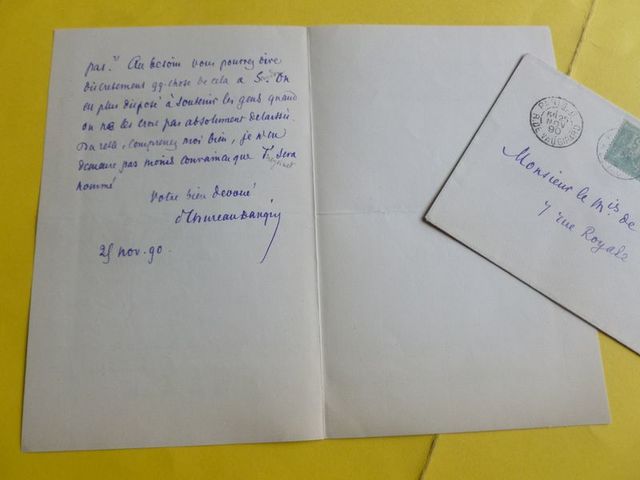 pas." Au besoin vous pourrez dire
discrètement qq. chose de cela à S. On
est plus disposé à soutenir les gens quand
on ne les croit pas absolument délaissés.
Du reste, comprenez moi bien, je n'en
demeure pas moins convaincu que F. sera
nommé
Votre bien dévoué
Thureau Dangin
25 nov. 90.
PARIS
R. DE VAUGIRARD
NOV
90
Monsieur le Mis de
7 rue Royale